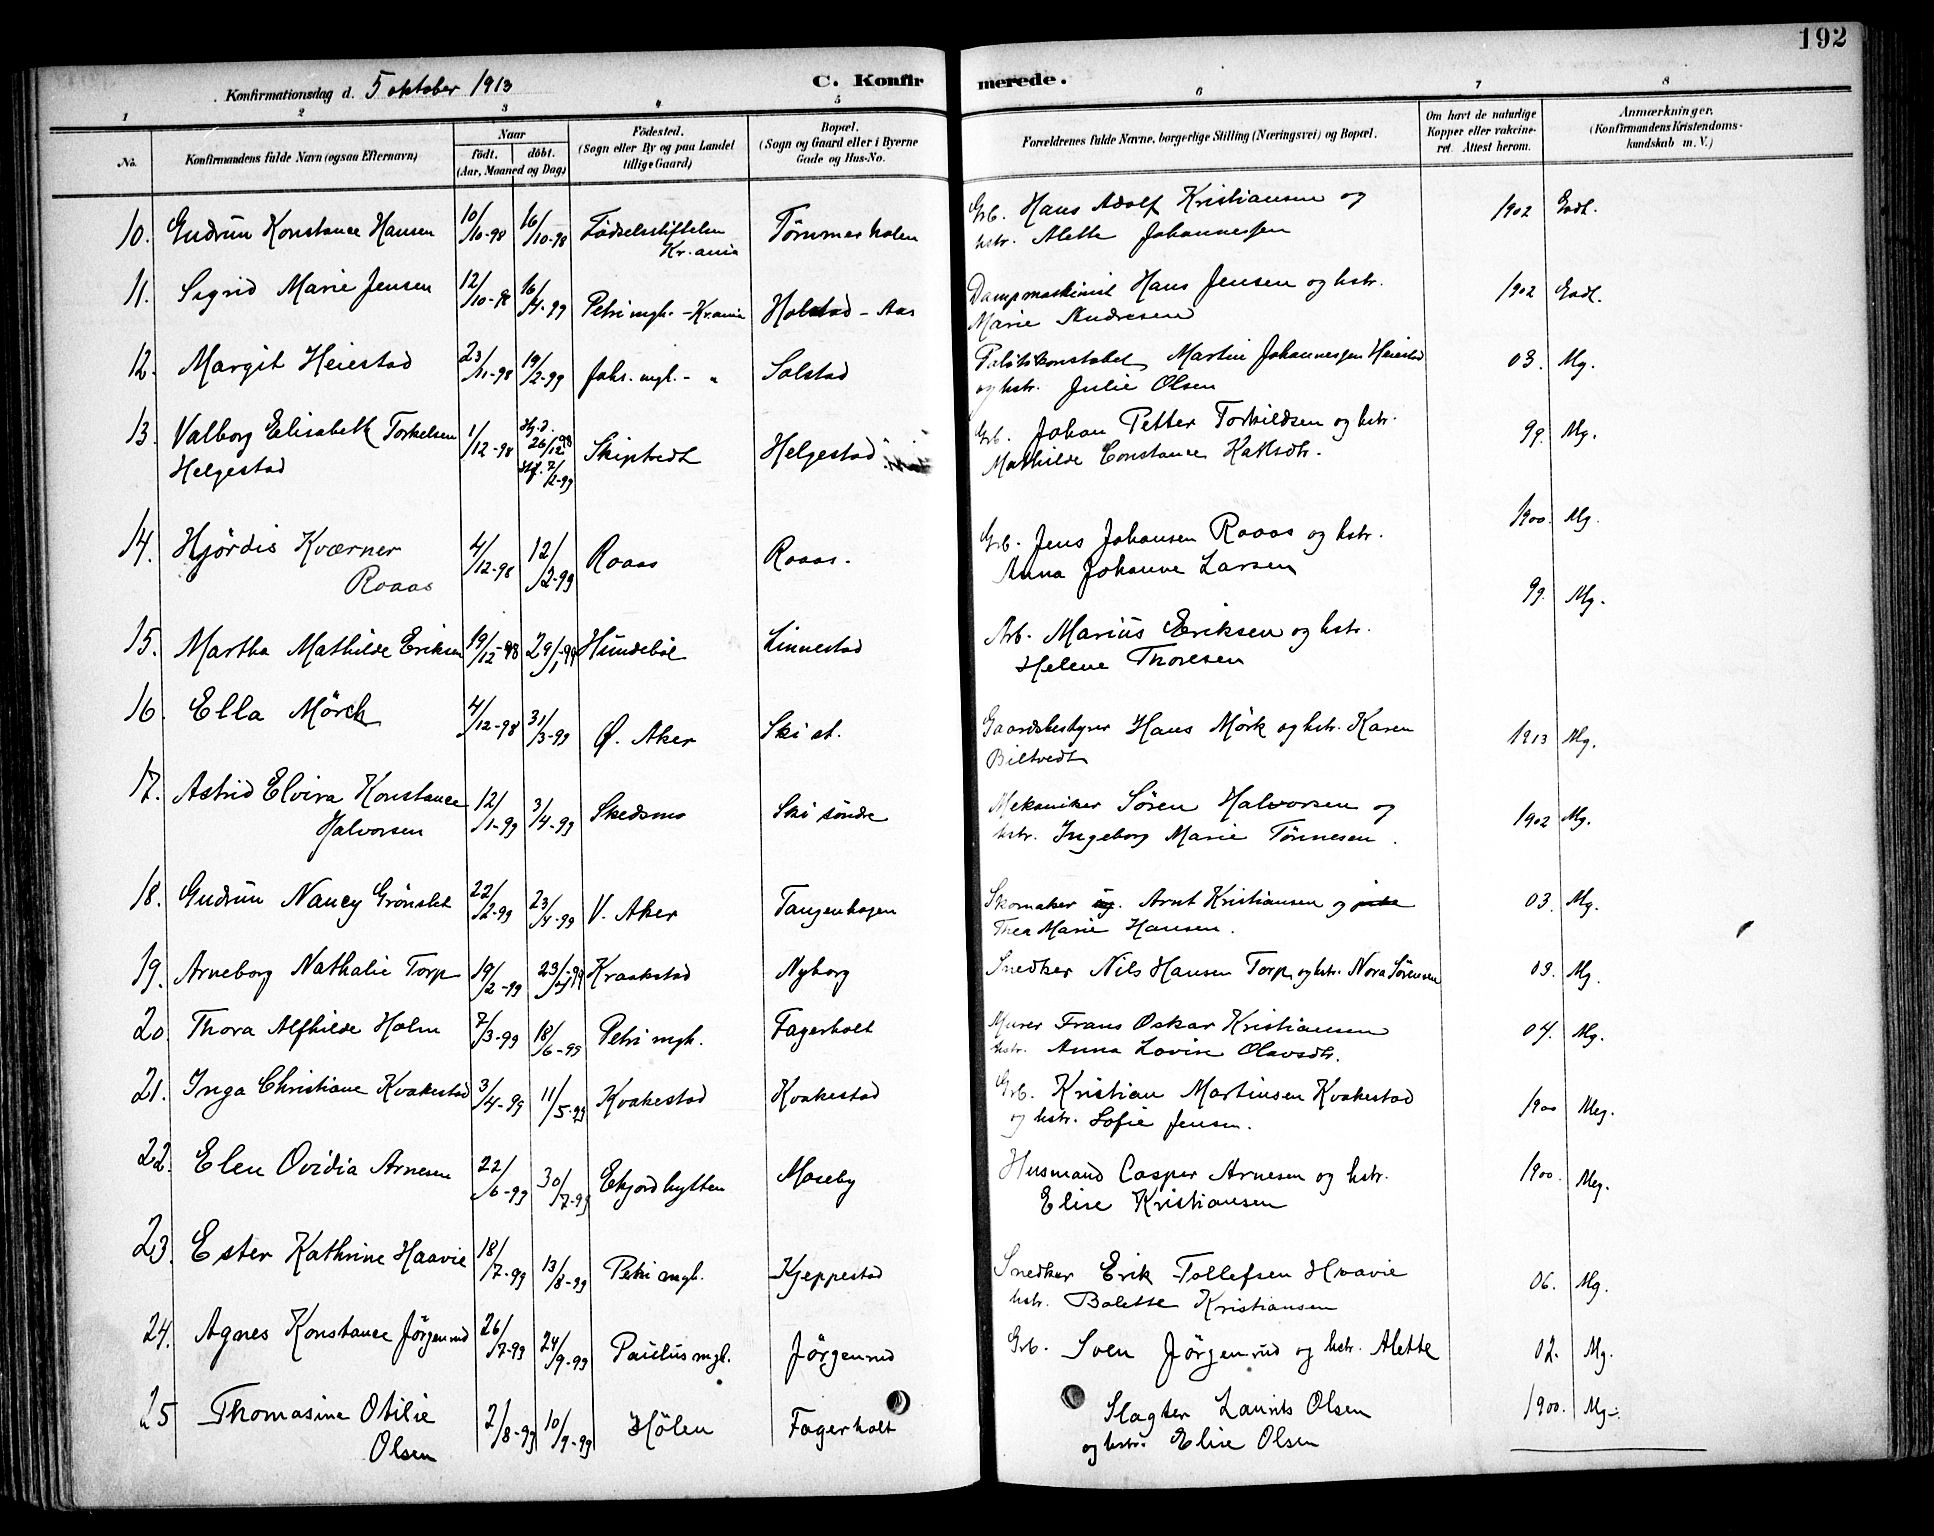 192
Konfirmationsdag d. 5 oktober 1913 C. Konfirmerede.
1 2 3 4 5 6 7 8
No. Konfirmandens fulde Navn (ogsaa Efternavn) Naar födt. döbt. (Aar, Maaned og Dag) Födested. (Sogn eller By og paa Landet tillige Gaard) Bopæl. (Sogn og Gaard eller i Byerne Gade og Hus-No. Forældrenes fulde Navne, borgerlige Stilling (Næringsvei) og Bopæl. Om havt de naturlige Kopper eller vakcineret. Attest herom. Anmærkninger. (Konfirmandens Kristendomskundskab m. V.)
10. Gudrun Konstance Hansen 10/10-98 16/10-98 Födselsstiftelsen Kr.ania Tömmerholen Grb. Hans Adolf Kristiansen og 1902 Godt.
hstr. Alette Johannessen
11. Sigrid Marie Jensen 12/10-98 16/4-99 Petri mgh. - Kr.ania Holstad - Aas Dampmaskinist Hans Jensen og hstr. 1902 Godt.
Marie Andresen
12. Margit Heiestad 23/11-98 19/2-99 Johs. mgl. - " Solstad Politikonstabel Martin Johannessen Heiestad 03. Mg.
og hstr. Julie Olsen
13. Valborg Elisabeth Torkelsen 1/12-98 Hj.d. 26/12 98 Skiptvedt Helgestad Grb. Johan Petter Torkildsen og hstr. 99. Mg.
Helgestad 2/2-99 Mathilde Constance
14. Hjördis Kværner 4/12-98 12/2-99 Roaas Roaas. Grb. Jens Johansen Roaas og hstr. 1900. Mg.
Roaas Anna Johanne Larsen
15. Martha Mathilde Eriksen 19/12-98 29/1-99 Hundeböl Linnestad Arb. Marius Eriksen og hstr. 99. Mg.
Helene Thoresen
16. Ella Mörch 4/12-98 31/3-99 Ø. Aker Ski st. Gaardsbestyrer Hans Mörk og hstr. Karen 1913 Mg.
Biltvedt
17. Astrid Elvira Konstance 12/1-99 3/4-99 Skedsmo Ski söndre Mekaniker Sören Halvorsen og 1902 Mg.
Halvorsen hstr. Ingeborg Marie Tönnesen.
18. Gudrun Nancy Grönslet 22/2-99 23/4-99 V. Aker Tangenhagen Skomaker Arnt Kristiansen og 03. Mg.
Thea Marie Hansen.
19. Arneborg Nathalie Torp 19/2-99 23/-99 Kraakstad Nyborg Snedker Nils Hansen Torp og hstr. Nora Sörensen 03. Mg.
20. Thora Alfhilde Holm 7/3-99 18/6-99 Petri mgh. Fagerholt Murer Frans Oskar Kristiansen 04. Mg.
hstr. Anna Lovise Olavsdtr.
21. Inga Christiane Kvakestad 3/4-99 11/5-99 Kvakestad Kvakestad Grb. Kristian Martinsen Kvakestad 1900 Meg.
og hstr. Sofie Jensen.
22. Elen Ovidia Arnesen 22/6-99 30/7-99 Ekjordhytten Moseby Husmand Casper Arnesen og hstr. 1900. Meg.
Elise Kristiansen
23. Ester Kathrine Haavie 18/7-99 13/8-99 Petri mgh. Kjeppestad Snedker Erik Tollefsen Haavie 06. Mg.
hstr. Bolette Kristiansen
24. Agnes Konstance Jörgenrud 26/7-99 24/9-99 Paulus mgl. Jörgenrud Grb. Sven Jörgenrud og hstr. Alette 02. Mg.
25 Thomasine Otilie 2/8-99 10/9-99 Hölen Fagerholt Slagter Laurits Olsen 1900. Mg.
Olsen og hstr. Elise Olsen